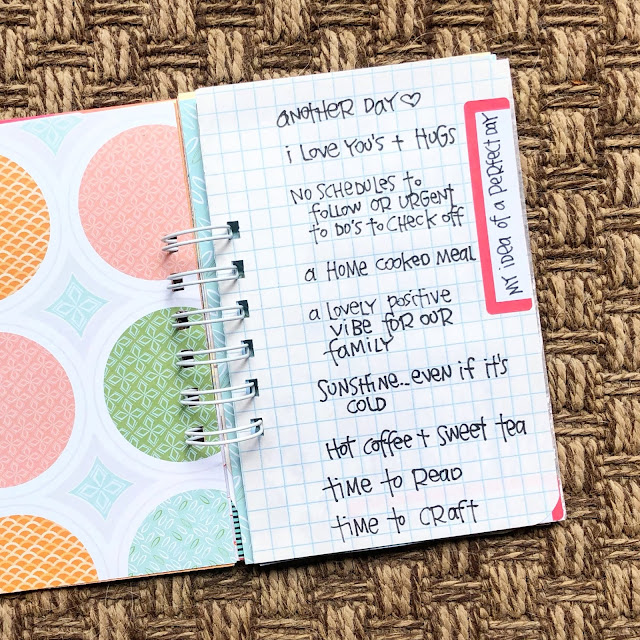 another day ♡
i love you's + hugs
no schedules to
follow or urgent
to do's to check off
a home cooked meal
a lovely positive
vibe for our
family
sunshine...even if it's
cold
hot coffee + sweet tea
time to read
time to craft
my idea of a perfect day